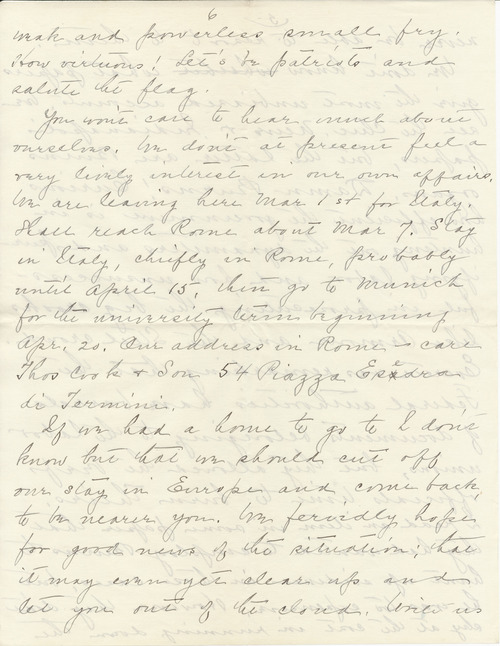 6
weak and powerless small fry.
How virtuous! Let's be patriots and
salute the flag.
You won't care to hear much about
ourselves. We don't at present feel a
very lively interest in our own affairs.
We are leaving here Mar 1st for Italy.
Shall reach Rome about Mar 7. Stay
in Italy, chiefly in Rome, probably
until April 15, then go to Munich
for the university term beginning
Apr. 20. Our address in Rome - care
Thos Cook & Son 54 Piazza Esedra
di Termini.
If we had a home to go to I don't
know but that we should cut off
our stay in Europe and come back
to be nearer you. We fervidly hope
for good news of the situation; that
it may even yet clear up and
let you out of the cloud. Write us